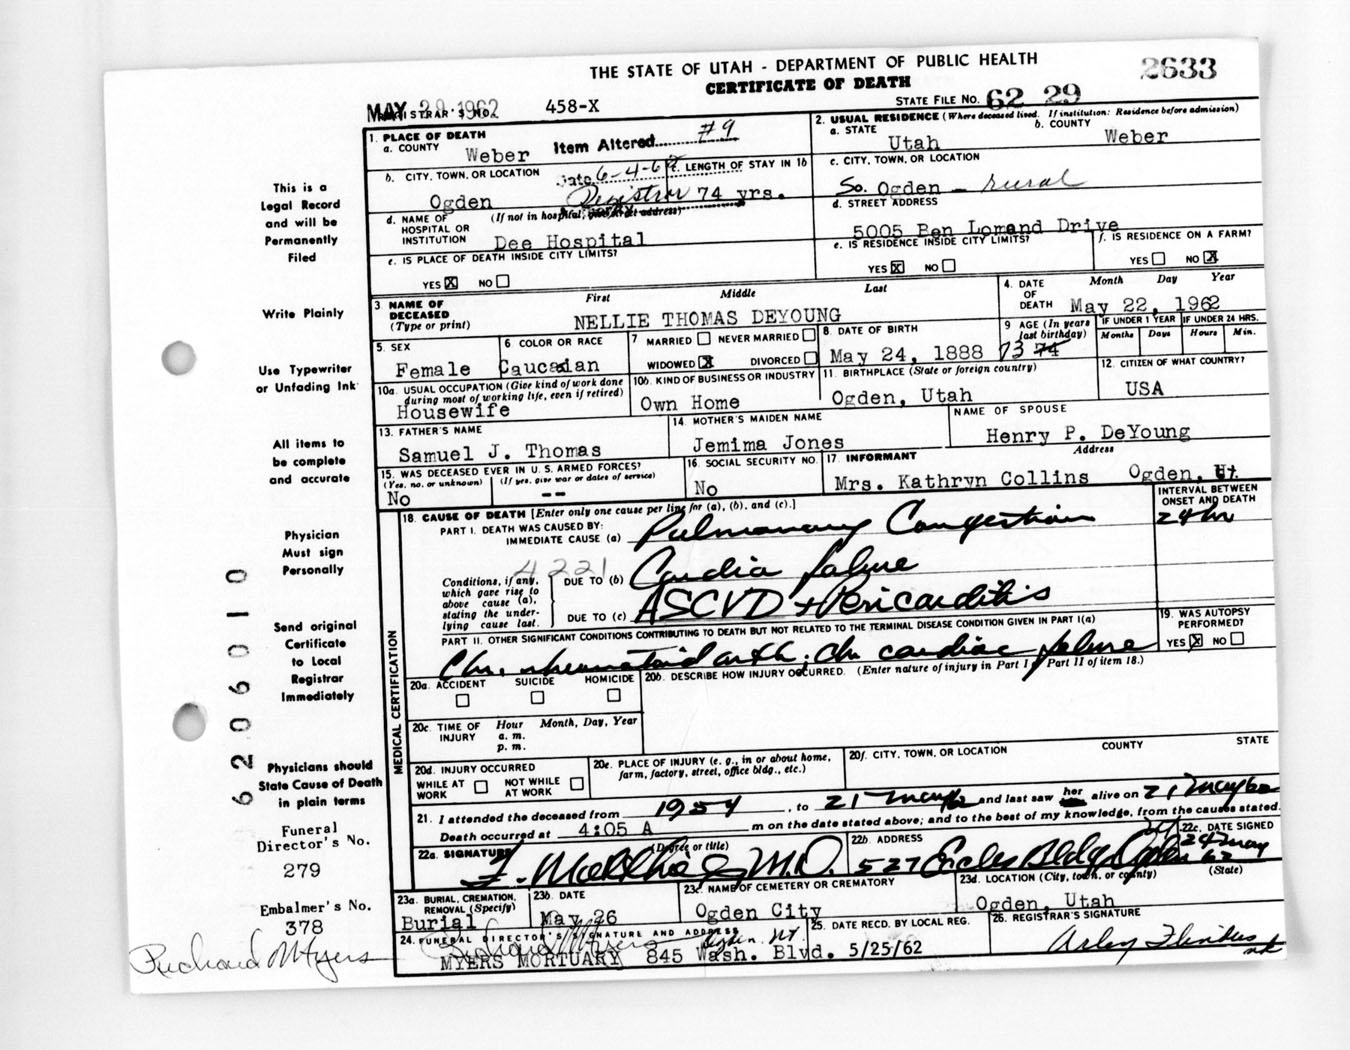 THE STATE OF UTAH - DEPARTMENT OF PUBLIC HEALTH
CERTIFICATE OF DEATH
2633
MAY 29 1962
REGISTRAR'S NO.
458-X
STATE FILE NO. 62 29
1. PLACE OF DEATH
a. COUNTY Weber
Item Altered #9
Date 6-4-62
Registrar
2. USUAL RESIDENCE (Where deceased lived. If institution: Residence before admission)
a. STATE Utah
b. COUNTY Weber
b. CITY, TOWN, OR LOCATION Ogden
c. LENGTH OF STAY IN 1b 74 yrs.
c. CITY, TOWN, OR LOCATION So. Ogden - rural
d. NAME OF HOSPITAL OR INSTITUTION (If not in hospital, give street address) Dee Hospital
d. STREET ADDRESS 5005 Ben Lomand Drive
e. IS PLACE OF DEATH INSIDE CITY LIMITS?
YES X NO
e. IS RESIDENCE INSIDE CITY LIMITS?
YES X NO
f. IS RESIDENCE ON A FARM?
YES NO X
3 NAME OF DECEASED (Type or print)
First Middle Last
NELLIE THOMAS DEYOUNG
4. DATE OF DEATH Month Day Year
May 22, 1962
5. SEX Female
6 COLOR OR RACE Caucasian
7 MARRIED NEVER MARRIED
WIDOWED X DIVORCED
8. DATE OF BIRTH May 24, 1888
9 AGE (In years last birthday) 73 74
IF UNDER 1 YEAR Months Days
IF UNDER 24 HRS. Hours Min.
10a. USUAL OCCUPATION (Give kind of work done during most of working life, even if retired) Housewife
10b. KIND OF BUSINESS OR INDUSTRY Own Home
11. BIRTHPLACE (State or foreign country) Ogden, Utah
12. CITIZEN OF WHAT COUNTRY? USA
13. FATHER'S NAME Samuel J. Thomas
14. MOTHER'S MAIDEN NAME Jemima Jones
NAME OF SPOUSE Henry P. DeYoung
15. WAS DECEASED EVER IN U.S. ARMED FORCES?
(Yes, no, or unknown) (If yes, give war or dates of service)
No --
16. SOCIAL SECURITY NO. No
17. INFORMANT Address
Mrs. Kathryn Collins Ogden, Ut.
18. CAUSE OF DEATH [Enter only one cause per line for (a), (b), and (c).]
INTERVAL BETWEEN ONSET AND DEATH
PART I. DEATH WAS CAUSED BY:
IMMEDIATE CAUSE (a) Pulmonary Congestion 24 hr
4221
Conditions, if any, which gave rise to above cause (a), stating the underlying cause last.
DUE TO (b) Cardia failure
DUE TO (c) ASCVD + Pericarditis
PART II. OTHER SIGNIFICANT CONDITIONS CONTRIBUTING TO DEATH BUT NOT RELATED TO THE TERMINAL DISEASE CONDITION GIVEN IN PART I(a)
Chr. rheumatoid arth; chr cardiac failure
19. WAS AUTOPSY PERFORMED?
YES X NO
20a. ACCIDENT SUICIDE HOMICIDE
20b. DESCRIBE HOW INJURY OCCURRED. (Enter nature of injury in Part I or Part II of item 18.)
20c. TIME OF INJURY Hour a. m. p. m. Month, Day, Year
20d. INJURY OCCURRED
WHILE AT WORK NOT WHILE AT WORK
20e. PLACE OF INJURY (e. g., in or about home, farm, factory, street, office bldg., etc.)
20f. CITY, TOWN, OR LOCATION COUNTY STATE
21. I attended the deceased from 1954, to 21 May 62 and last saw her alive on 21 May 62
Death occurred at 4:05 A m on the date stated above; and to the best of my knowledge, from the causes stated.
22a. SIGNATURE (Degree or title) M.D.
22b ADDRESS 527 Eccles Bldg Ogden
22c. DATE SIGNED 24 May 62
23a. BURIAL, CREMATION, REMOVAL (Specify) Burial
23b. DATE May 26
23c. NAME OF CEMETERY OR CREMATORY Ogden City
23d. LOCATION (City, town, or county) (State) Ogden, Utah
24. FUNERAL DIRECTOR'S SIGNATURE AND ADDRESS
Richard M Myers Ogden, Ut
MYERS MORTUARY 845 Wash. Blvd.
25. DATE RECD. BY LOCAL REG. 5/25/62
26. REGISTRAR'S SIGNATURE
MEDICAL CERTIFICATION
This is a
Legal Record
and will be
Permanently
Filed
Write Plainly
Use Typewriter
or Unfading Ink
All items to
be complete
and accurate
Physician
Must sign
Personally
Send original
Certificate
to Local
Registrar
Immediately
Physicians should
State Cause of Death
in plain terms
Funeral
Director's No.
279
Embalmer's No.
378
Richard M Myers
6206010